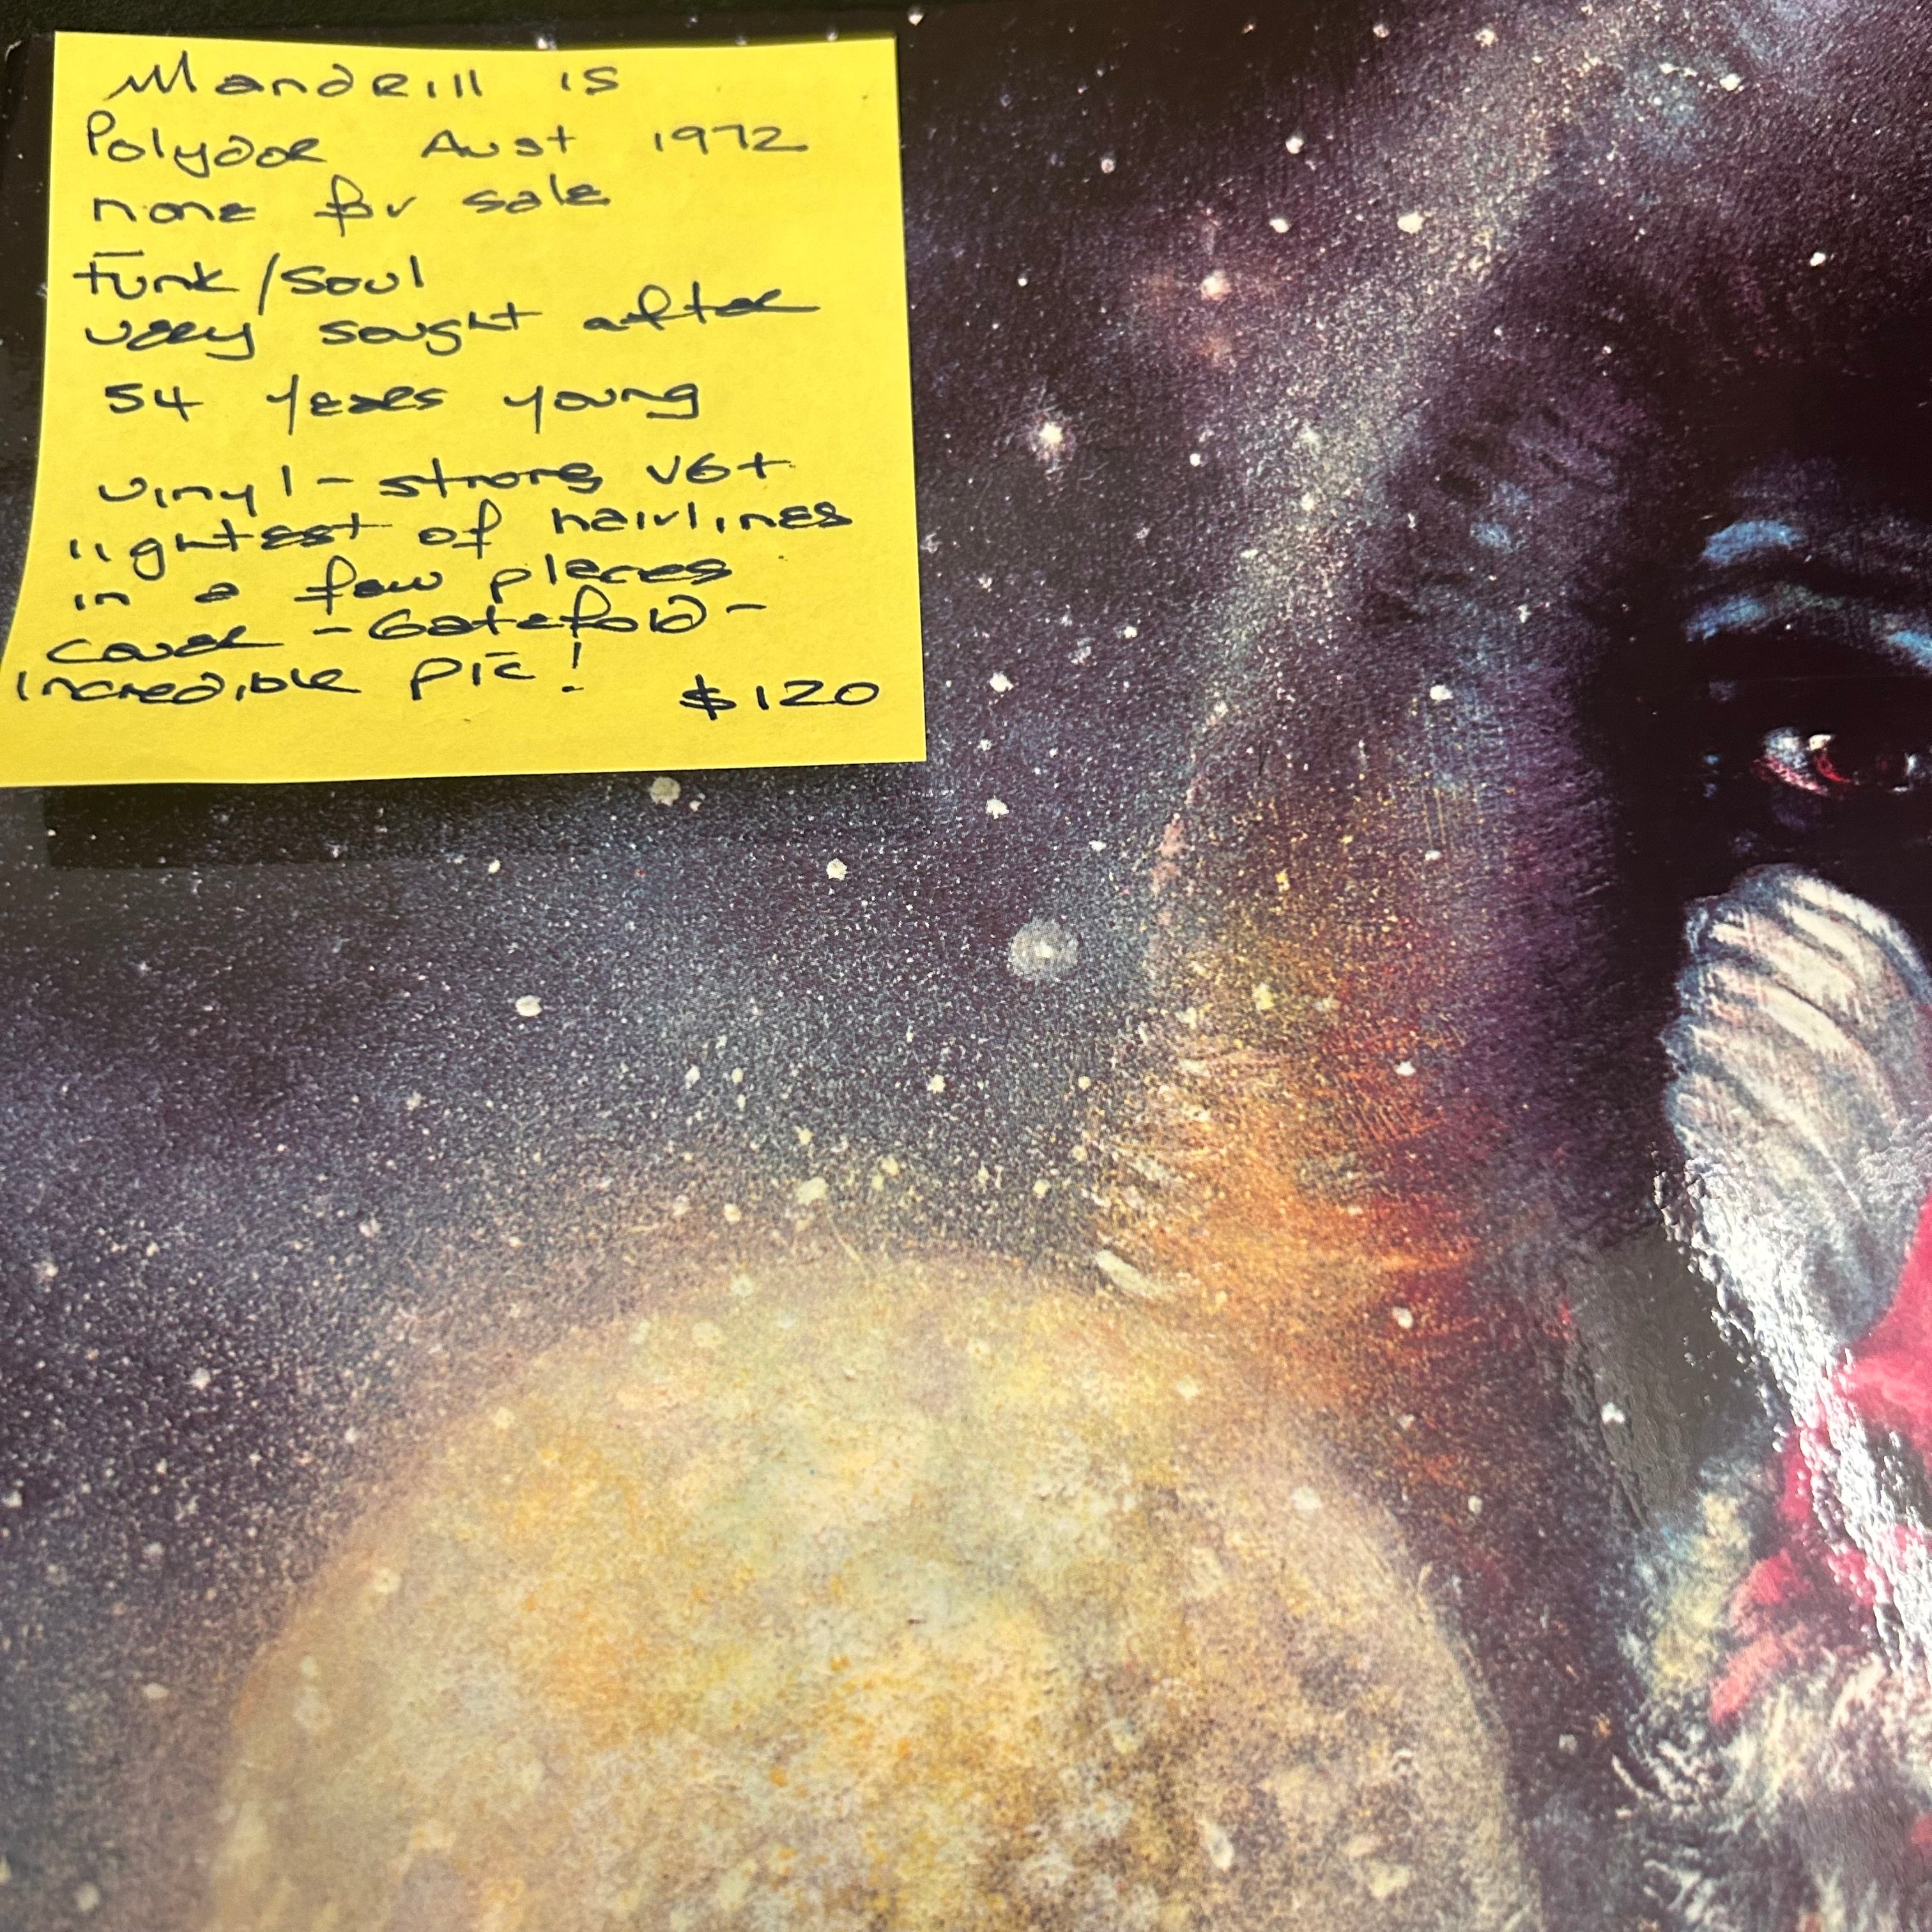 Mandrill is
Polydor Aust 1972
none for sale
Funk/Soul
very sought after
54 years young
vinyl - strong VG+
lightest of hairlines
in a few places
cover - Gatefold -
incredible pic!
$120